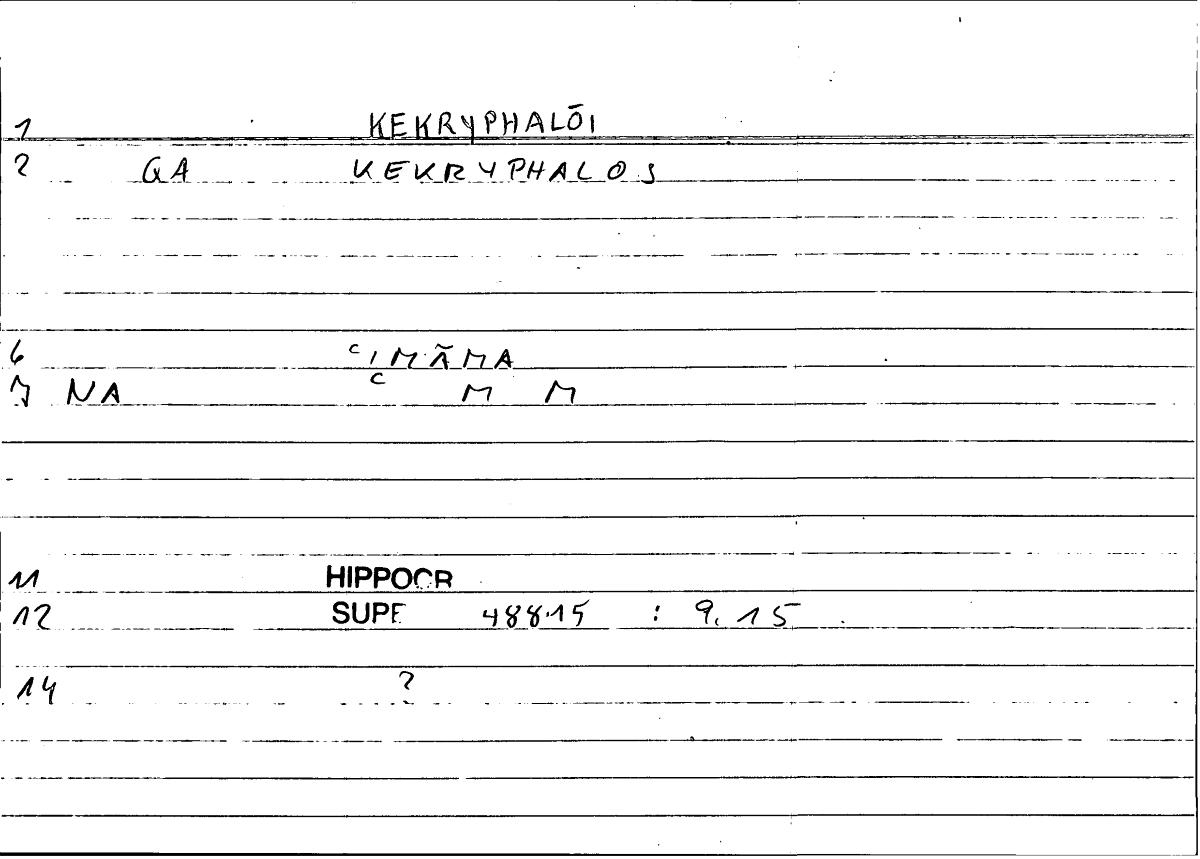 1 KEKRYPHALŌI
2 GA KEKRYPHALOS
6 ᶜIMĀMA
7 NA ᶜ M M
11 HIPPOCR
12 SUPE 488.15 : 9, 15
14 ?